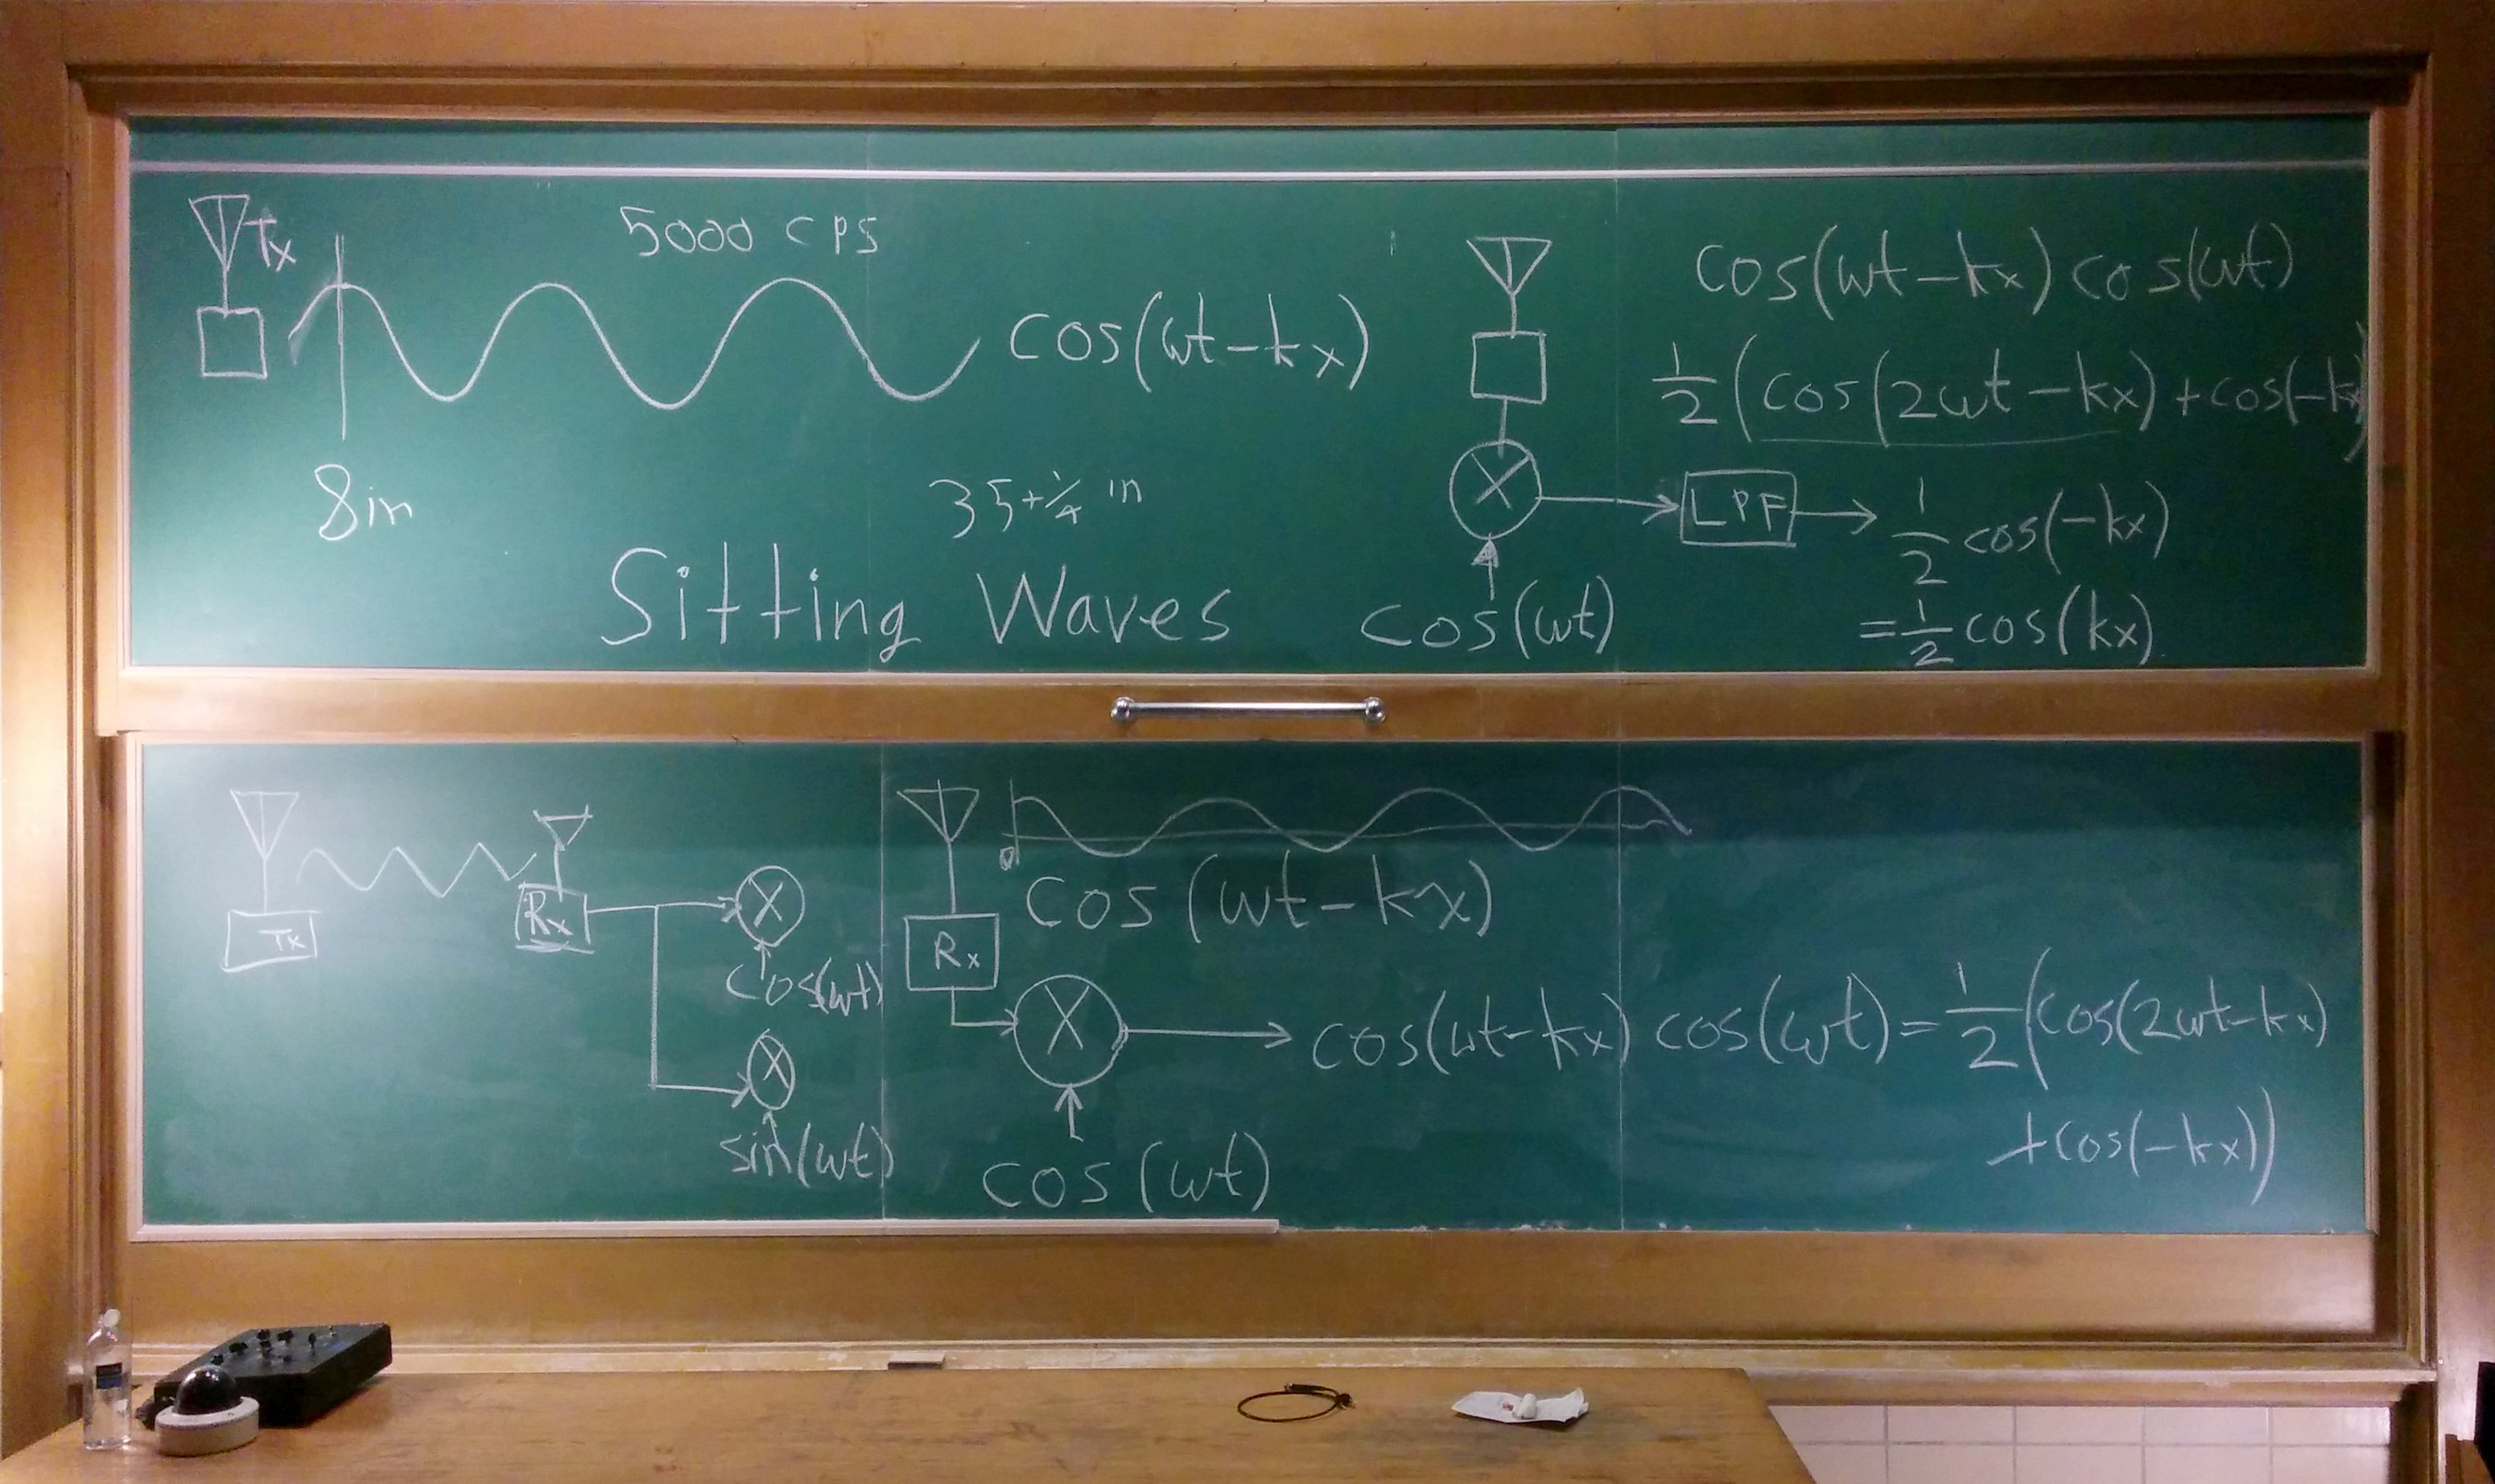 Tx
5000 CPS
cos(ωt-kx)
8in
35+¼ in
Sitting Waves
X
cos(ωt)
LPF
cos(ωt-kx) cos(ωt)
1/2 (cos(2ωt-kx) + cos(-kx)
1/2 cos(-kx)
= 1/2 cos(kx)
Tx
Rx
X
cos(ωt)
X
sin(ωt)
0
cos(ωt-kx)
Rx
X
cos(ωt)
cos(ωt-kx) cos(ωt) = 1/2 (cos(2ωt-kx)
+cos(-kx))